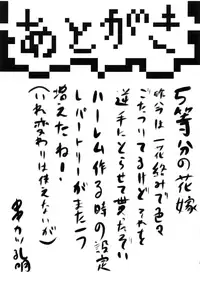 あとがき
5等分の花嫁
昨今は一花絡みで色々
ごたついてるけどそれを
逆手にとらせて貰ったぞい
ハーレム作る時の設定
レパートリーがまた一つ
増えたねー!
(いれ変わりは使えないが)